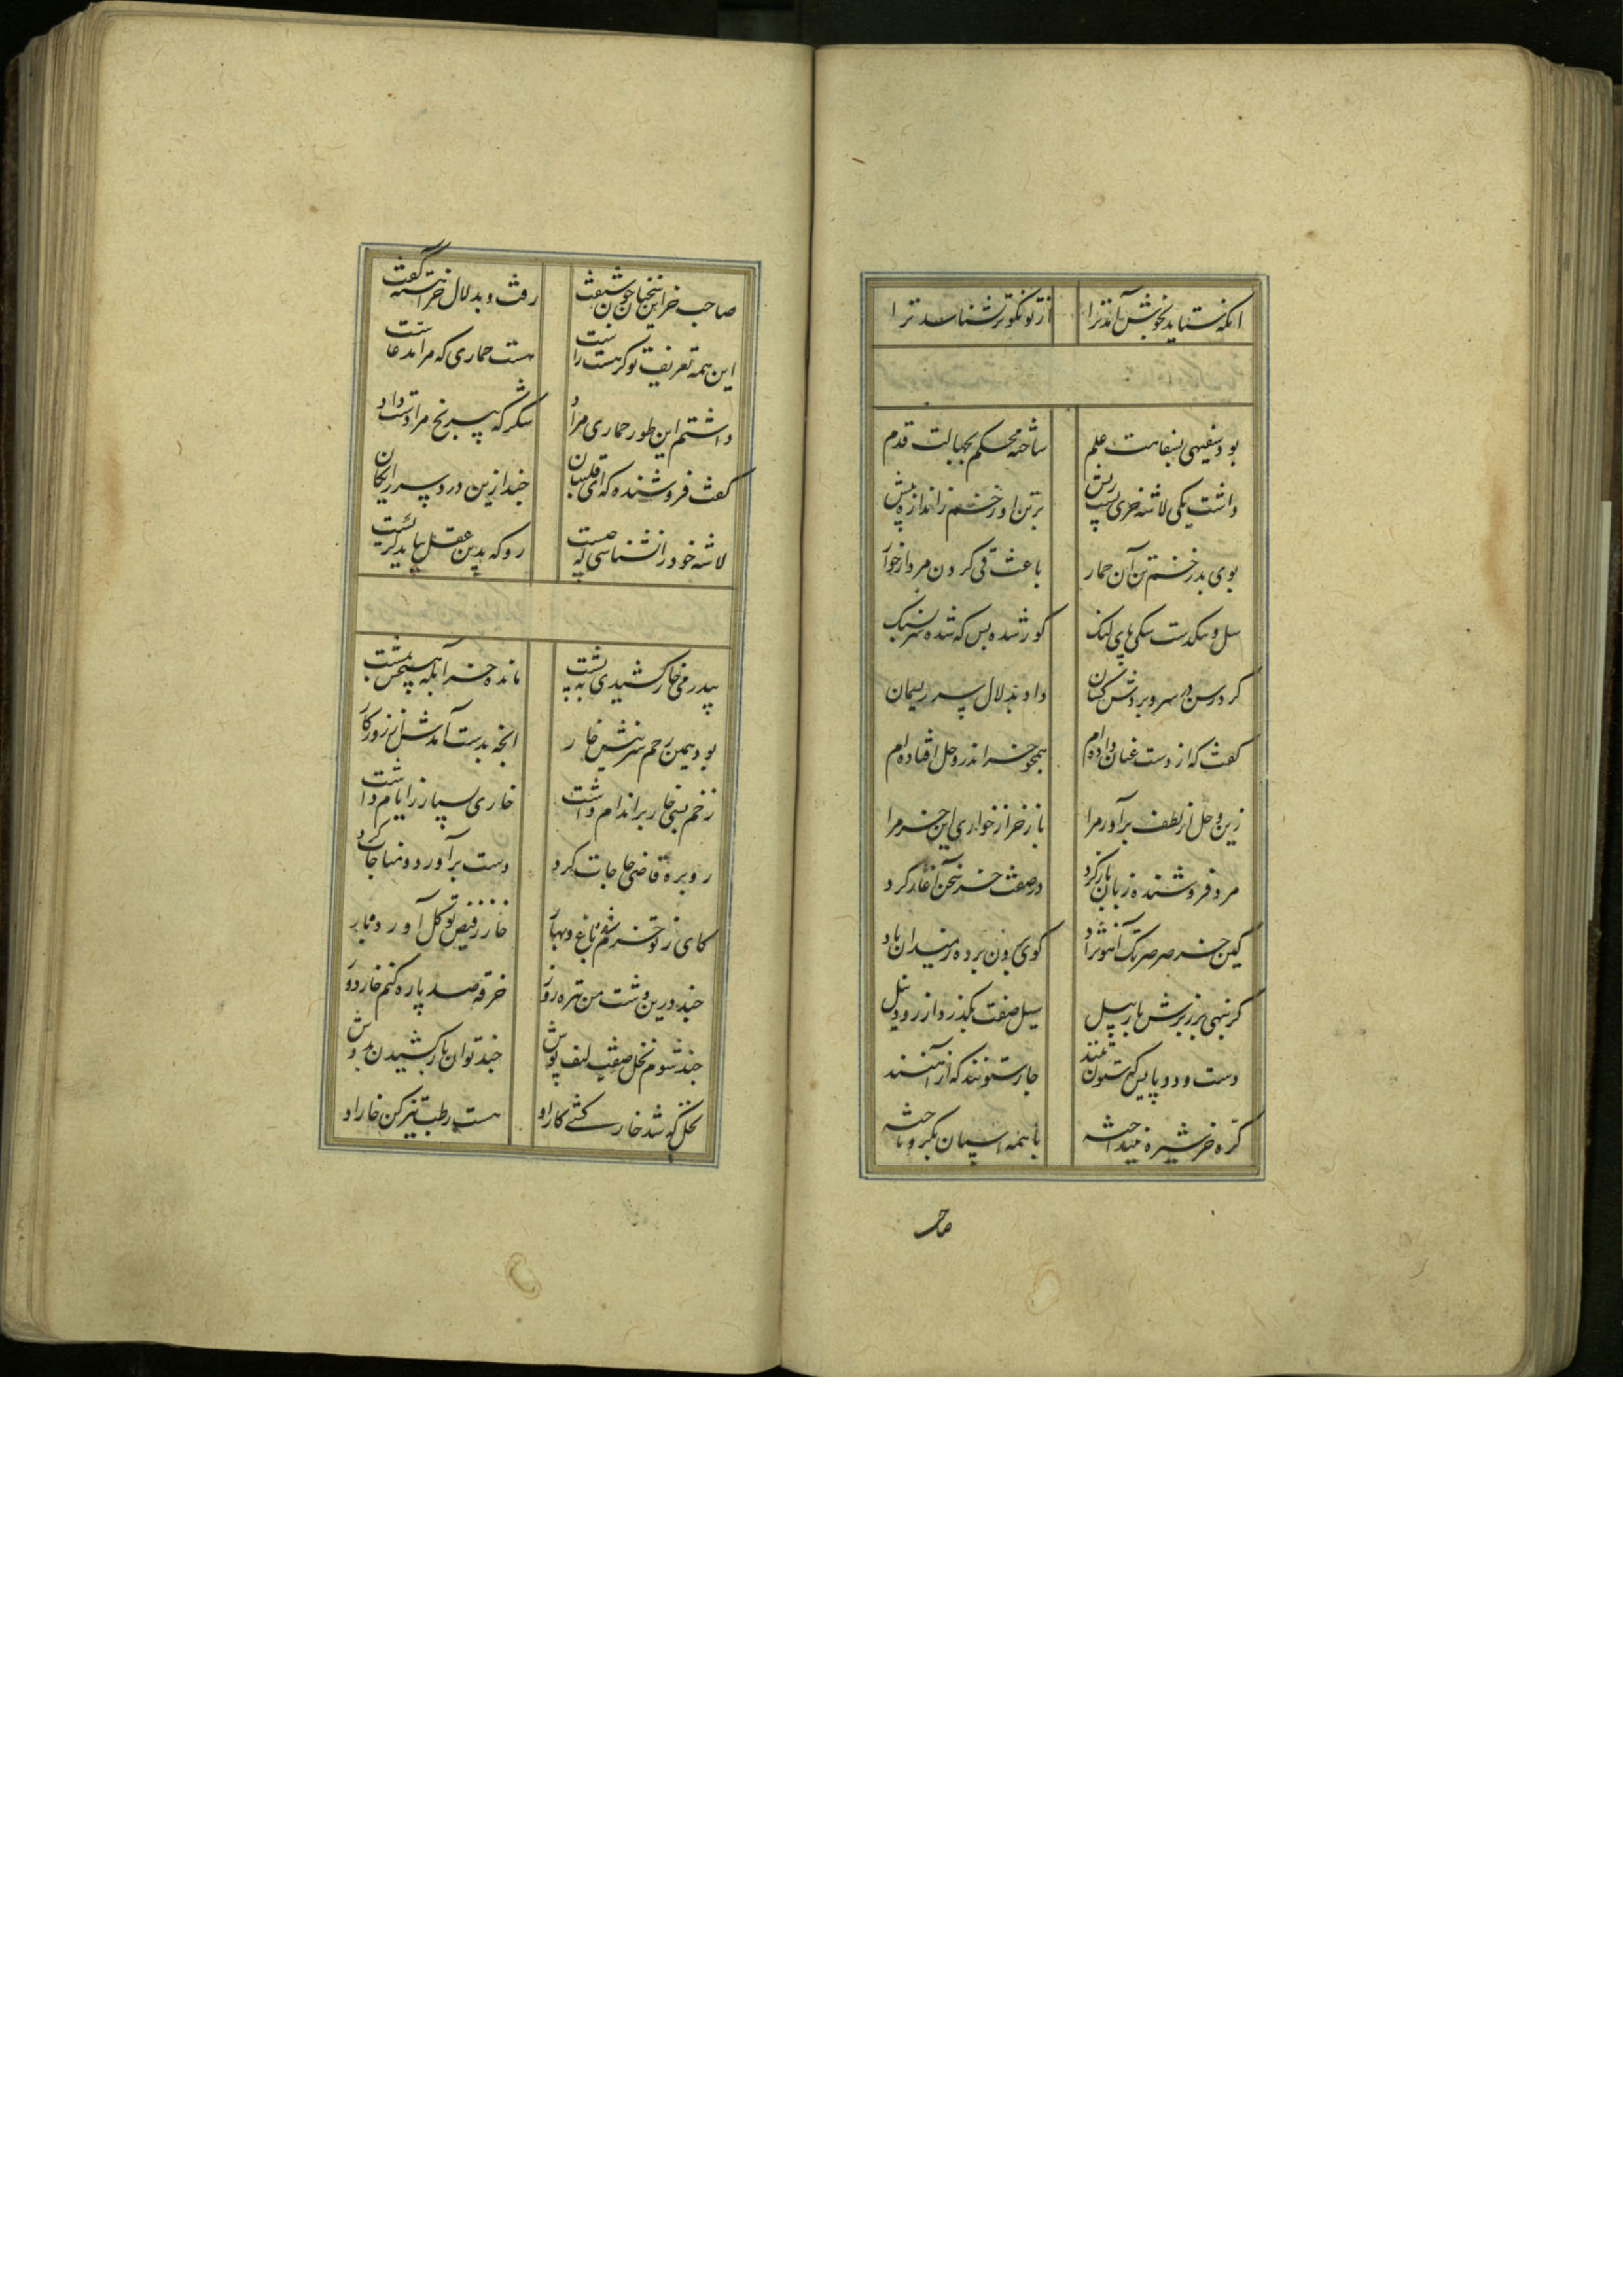 انکه ستاید بخوش آمد ترا ازتو نکوتر نشناسد ترا
بود سفیهی بسفاهت علم ساخته محکم بجهالت قدم
داشت یکی لاشه خری پشت ریش بر تن او زخم ز اندازه پیش
بوی بد زخم تن آن حمار باعث قی کردن مردارخوار
شل و یکدست یکی پای لنک کور شده بس که شده سر بسنک
کرد رسن در سر و بردش کشان داد بدلال سر ریسمان
کفت که از دست عنان داده ام همچو خر اندر وحل افتاده ام
زین وحل از لطف برآور مرا باز خر از خواری این خر مرا
مرد فروشنده زبان باز کرد در صفت خر سخن آغاز کرد
کین خر صرصر تک آهو نژاد کوی برون برده ز میدان باد
کر بنهی بر زبرش بار پیل سیل صفت بکذرد از رود نیل
دست و دو پایش که ستون تنند چار ستونند که از آهنند
کره خر شیره نینداخته با همه اسبان بکرو تاخته
صاحب
صاحب خر این سخنان چون شنفت رفت و بدلال خر آهسته کفت
این همه تعریف تو کر هست راست هست حماری که مرا مدعاست
داشتم این طور حماری مراد شکر که بی رنج مرا دست داد
کفت فروشنده که ای قلتبان چند ازین درد سر رایکان
لاشه خود را نشناسی که چیست رو که بدین عقل بباید کریست
پیر زمی خار کشیدی به پشت مانده خر آبله هیچش بمشت
بود همین زحم سر نیش خار انچه بدست آمدش از روزکار
زخم بسی خار بر اندام داشت خاری بسیار ز ایام داشت
رو بره قاضی حاجات کرد دست برآورد و مناجات کرد
کای ز تو خرم شده باغ و بهار خار ز فیض تو کل آورد و بار
چند درین دشت من تیره روز خرقه صد پاره کنم خاردوز
چند شوم نخل صفت لیف پوش چند توان بار کشیدن بدوش
نخل که شد خار کشی کار او هست رطب نیز کن خار او